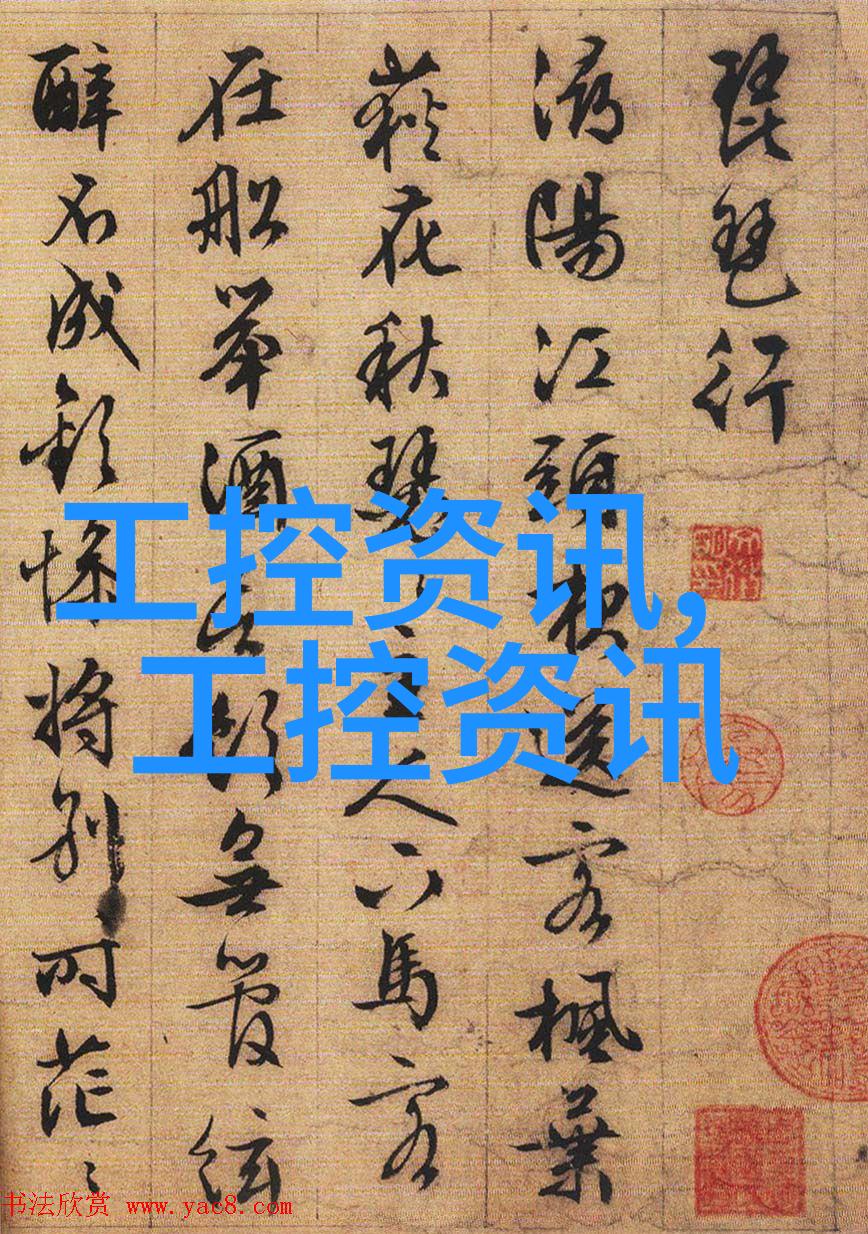 琵琶行
潯陽江頭夜送客楓葉
荻花秋瑟〻主人下馬客
在船舉酒欲飲無管絃
醉不成歡慘將別〻時茫〻
工控资讯,
工控资讯
书法欣赏 www.yac8.com